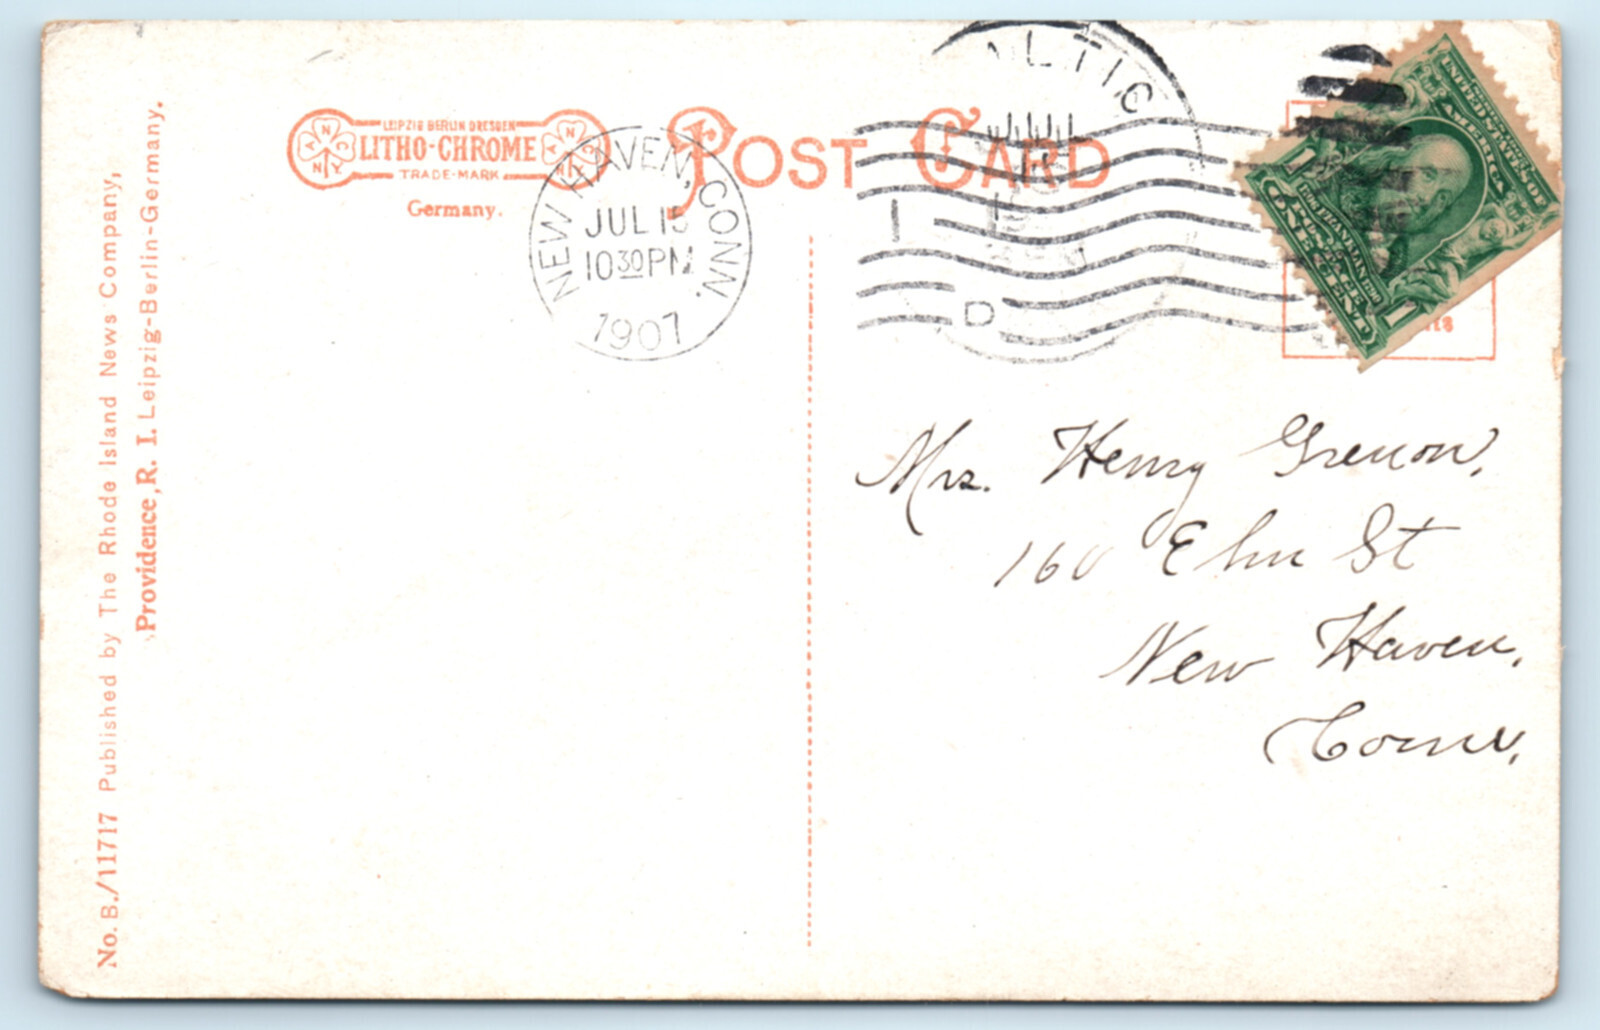 LEIPZIG BERLIN DRESDEN
LITHO-CHROME
TRADE-MARK
Germany.
POST CARD
NEW HAVEN, CONN.
JUL 15
10 30 PM
1907
1
D
UNITED STATES OF
AMERICA
1 1
ONE CENT
Mrs. Henry Grenon,
160 Elm St
New Haven,
Conn,
No. B./11717 Published by The Rhode Island News Company,
Providence, R. I. Leipzig-Berlin-Germany.